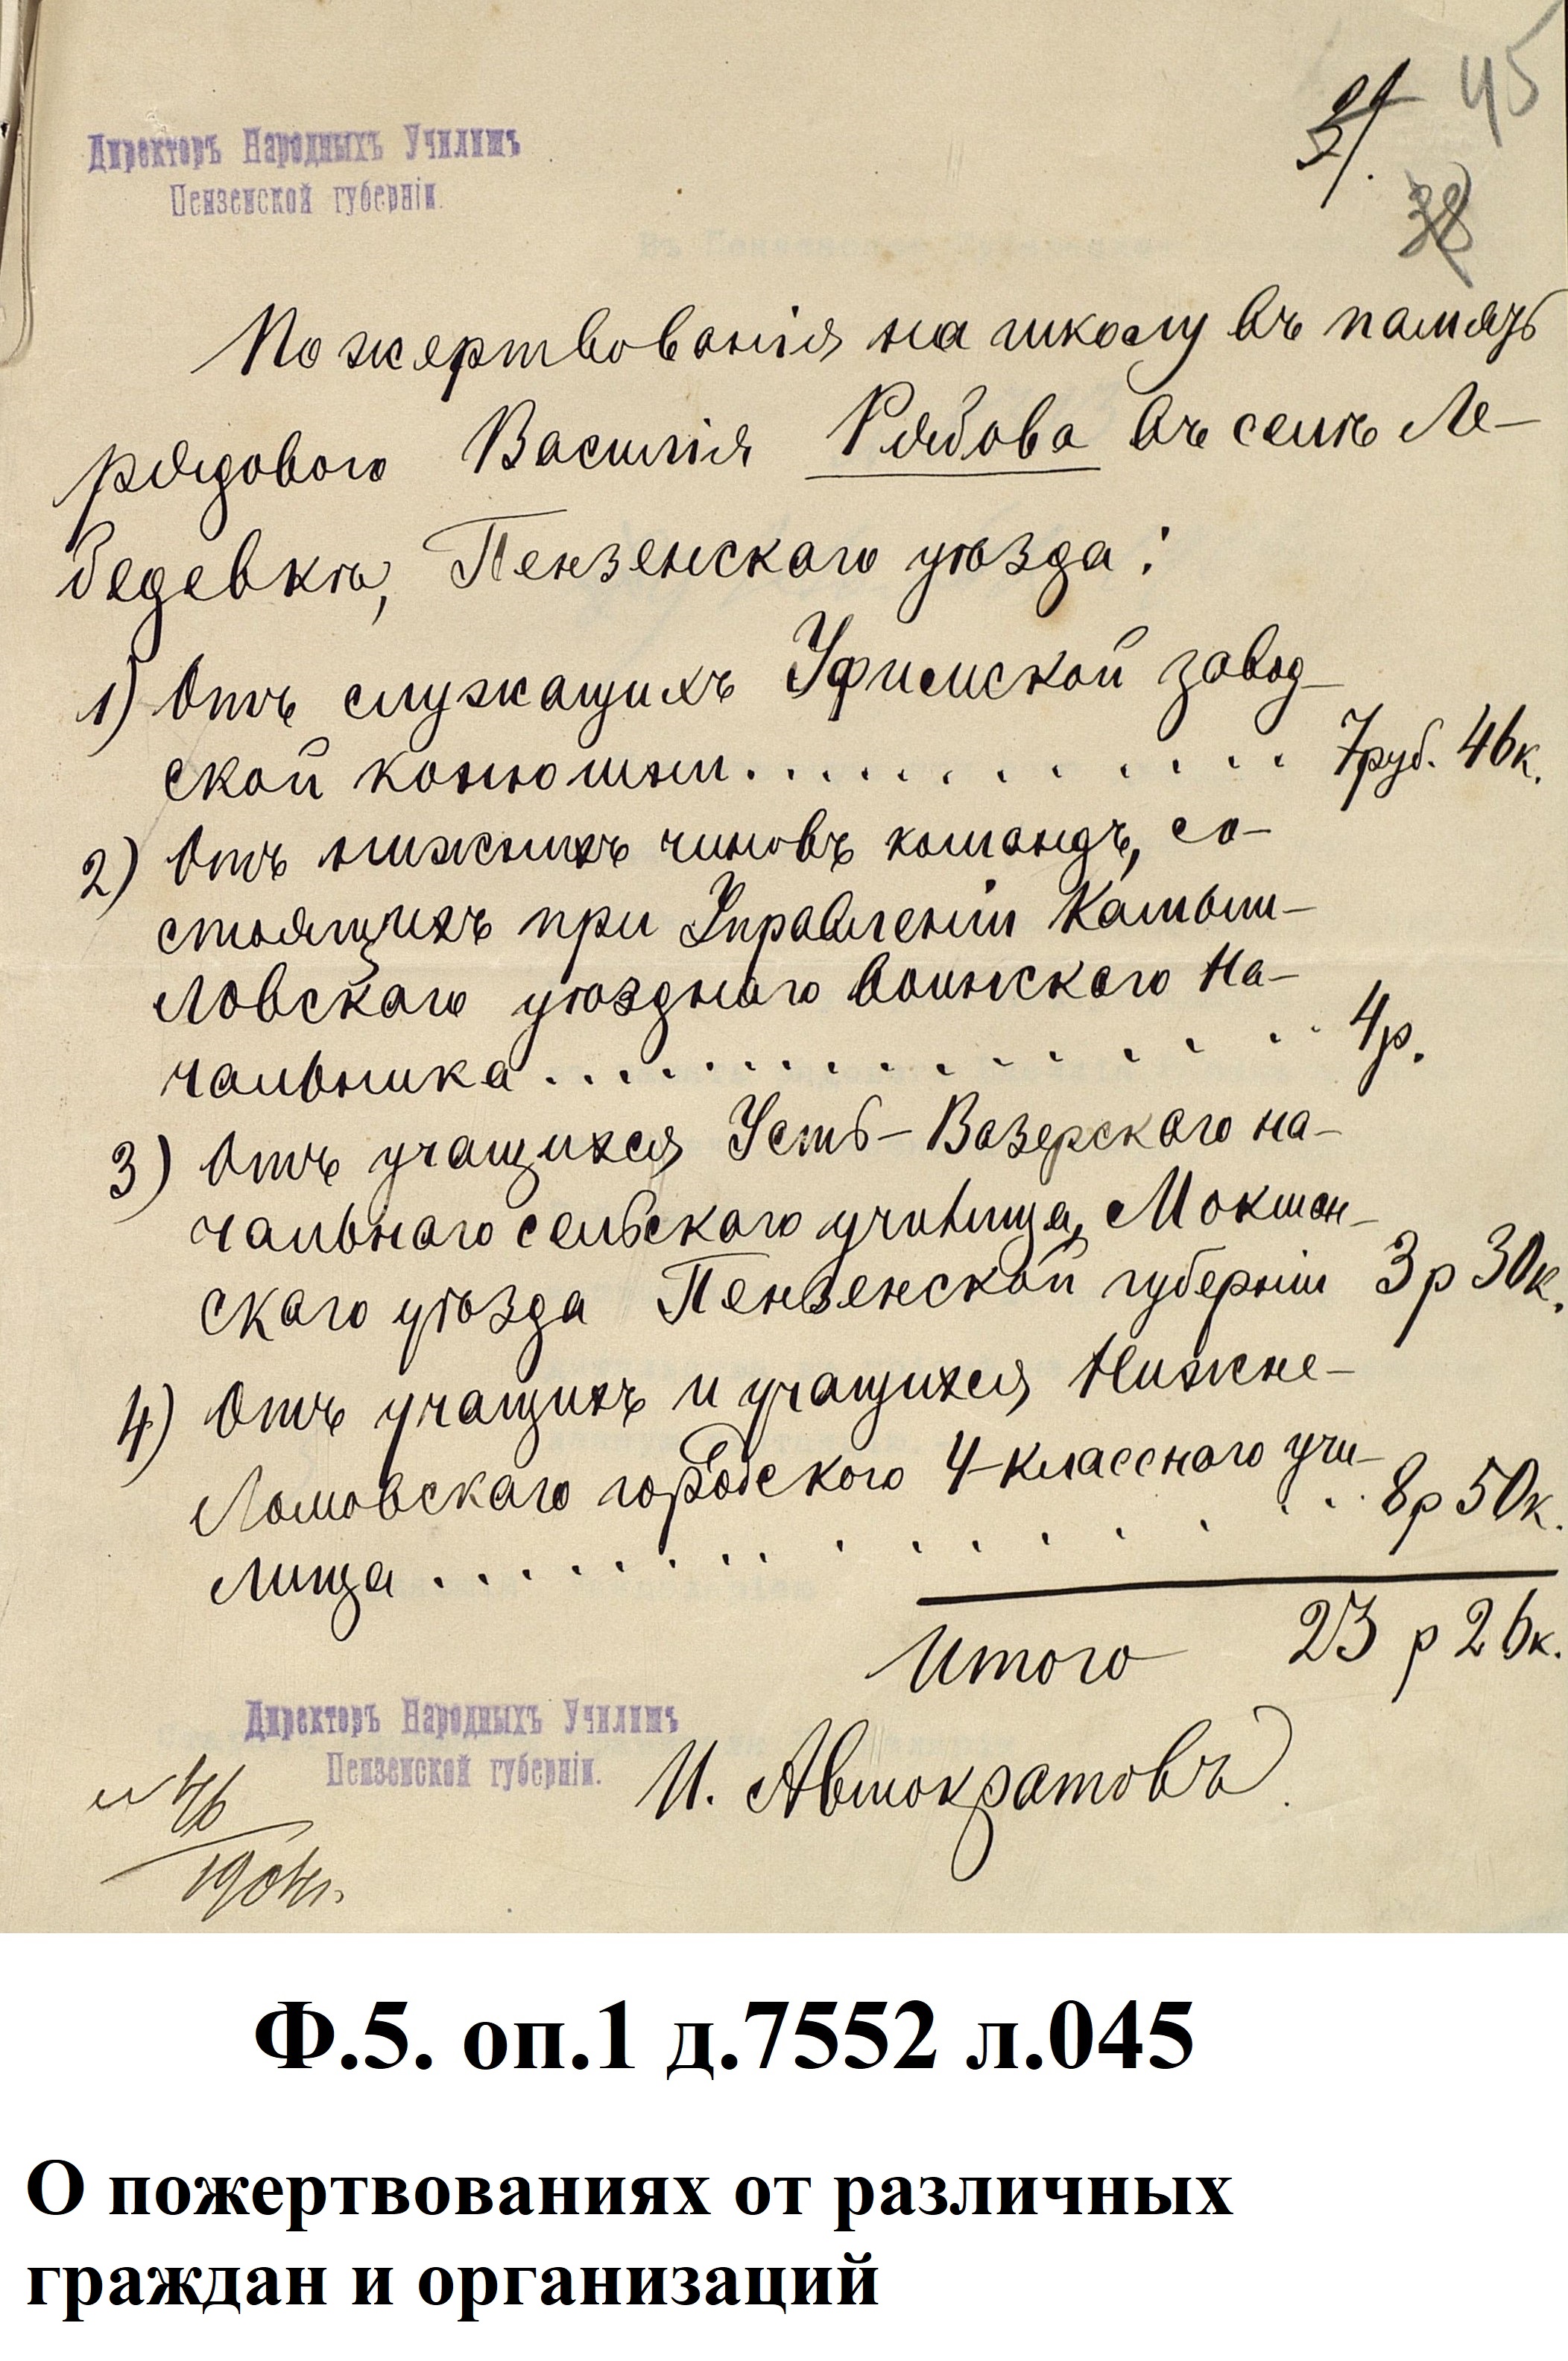 45
38
Директоръ Народныхъ Училищъ
Пензенской губерніи.
Пожертвованія на школу въ память
рядового Василія Рябова въ селѣ Ле-
бедевкѣ, Пензенскаго уѣзда:
1) Отъ служащихъ Уфимской завод-
ской конюшни............. 7руб. 46к.
2) Отъ нижнихъ чиновъ командъ, со-
стоящихъ при Управленіи Камыш-
ловскаго уѣзднаго воинскаго На-
чальника............... 4р.
3) Отъ учащихся Усть-Вазерскаго на-
чальнаго сельскаго училища, Мокшан-
скаго уѣзда Пензенской губерніи 3р 30к.
4) Отъ учащихъ и учащихся Нижне-
Ломовскаго городского 4-класснаго учи-
лища............... 8р 50к.
Итого 23 р 26к.
Директоръ Народныхъ Училищъ
Пензенской губерніи.
И. Автократовъ
1904г.
Ф.5. оп.1 д.7552 л.045
О пожертвованиях от различных
граждан и организаций